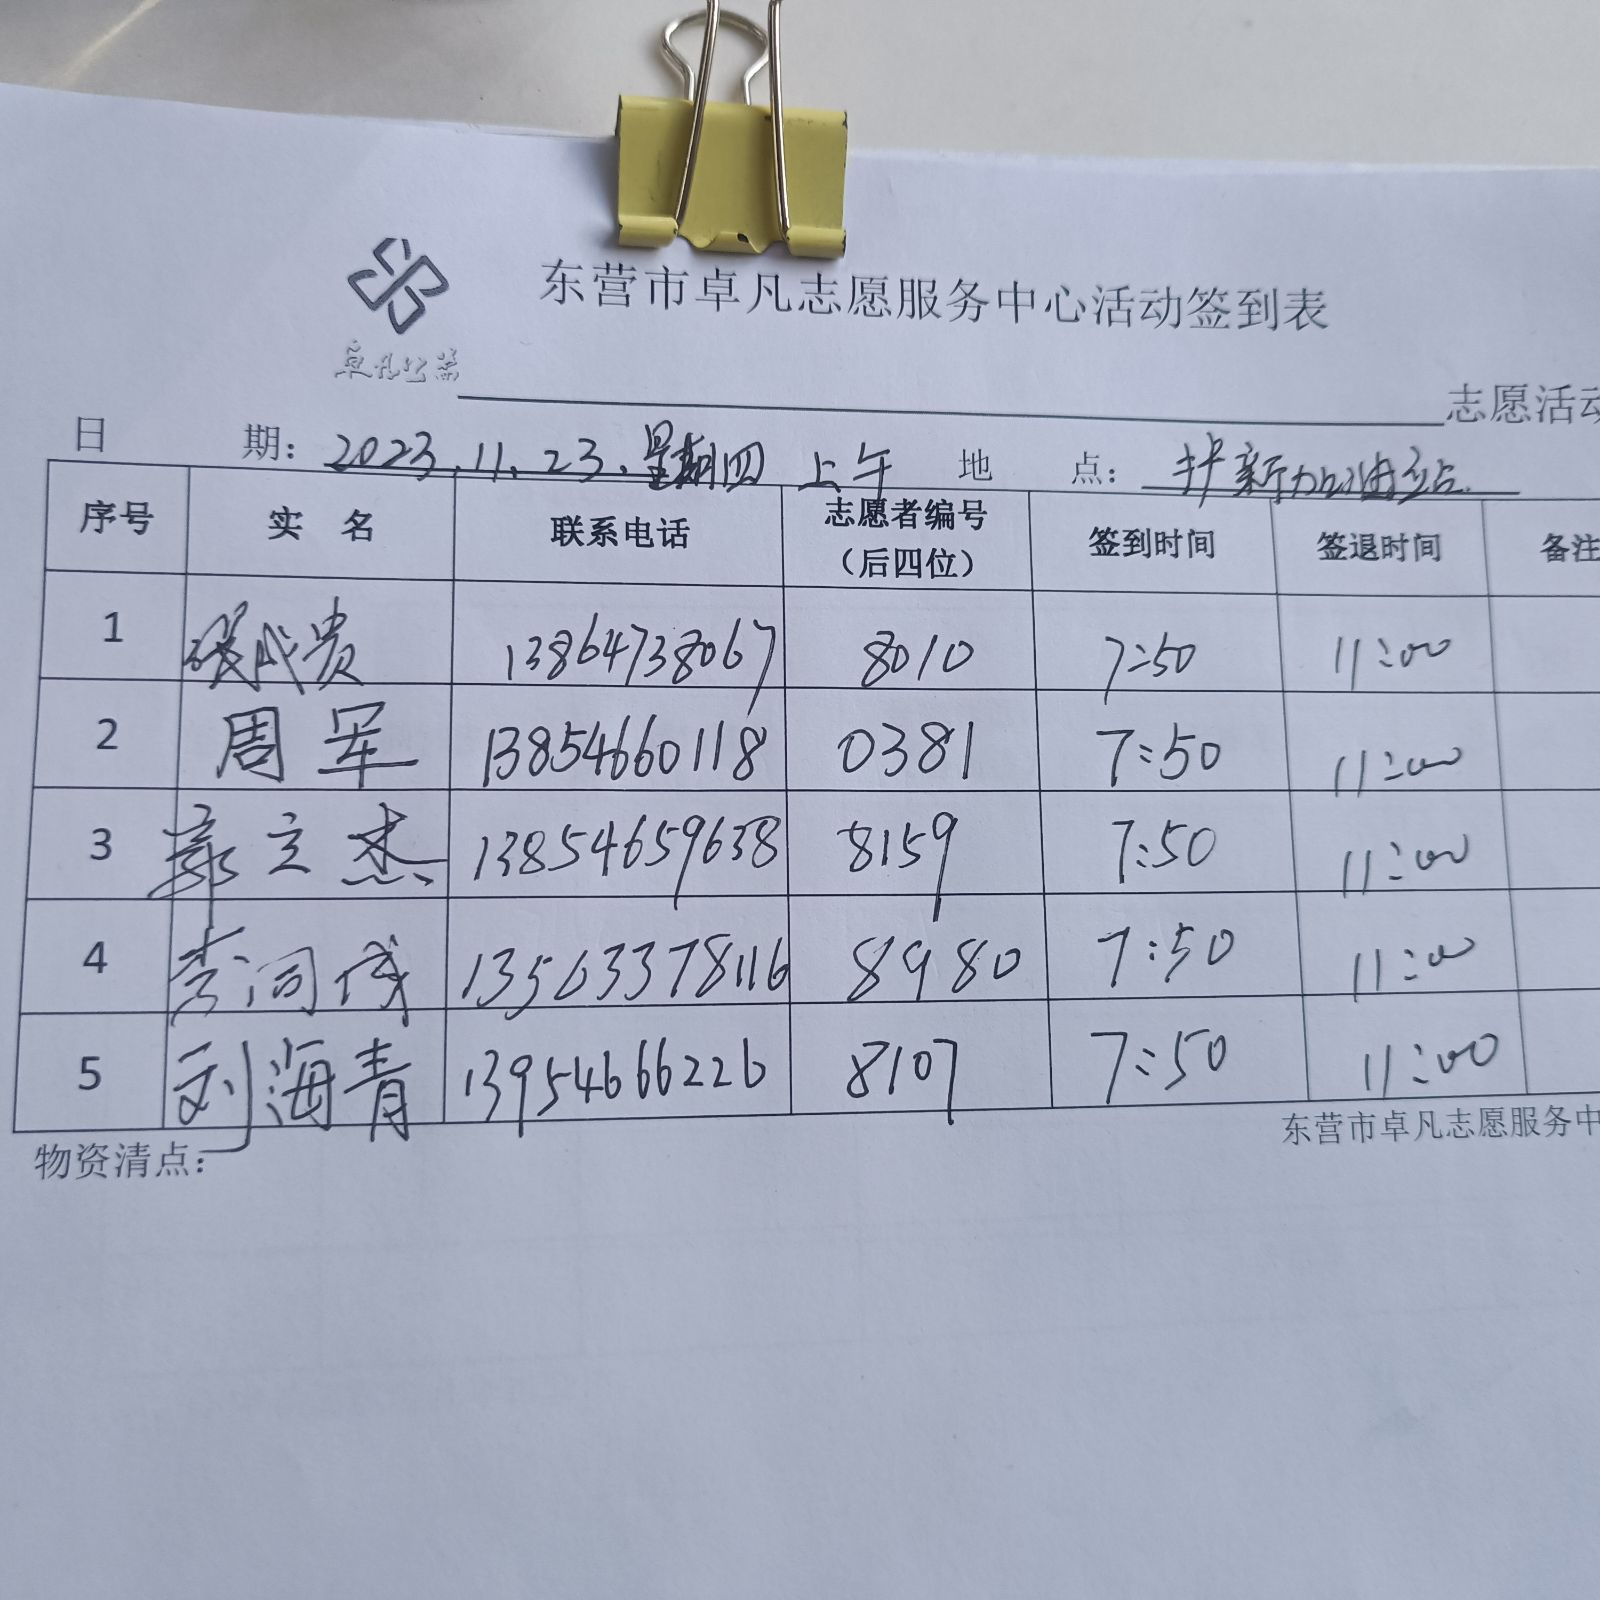 东营市卓凡志愿服务中心活动签到表
卓凡公益
志愿活动
日 期：2023.11.23.星期四 上午 地 点：护新加油站
序号 实 名 联系电话 志愿者编号（后四位） 签到时间 签退时间 备注
1 张成贵 13864738067 8010 7:50 11:00
2 周军 13854660118 0381 7:50 11:00
3 郭立杰 13854659638 8159 7:50 11:00
4 李同成 13563378116 8980 7:50 11:00
5 刘海青 13954666226 8107 7:50 11:00
物资清点： 东营市卓凡志愿服务中